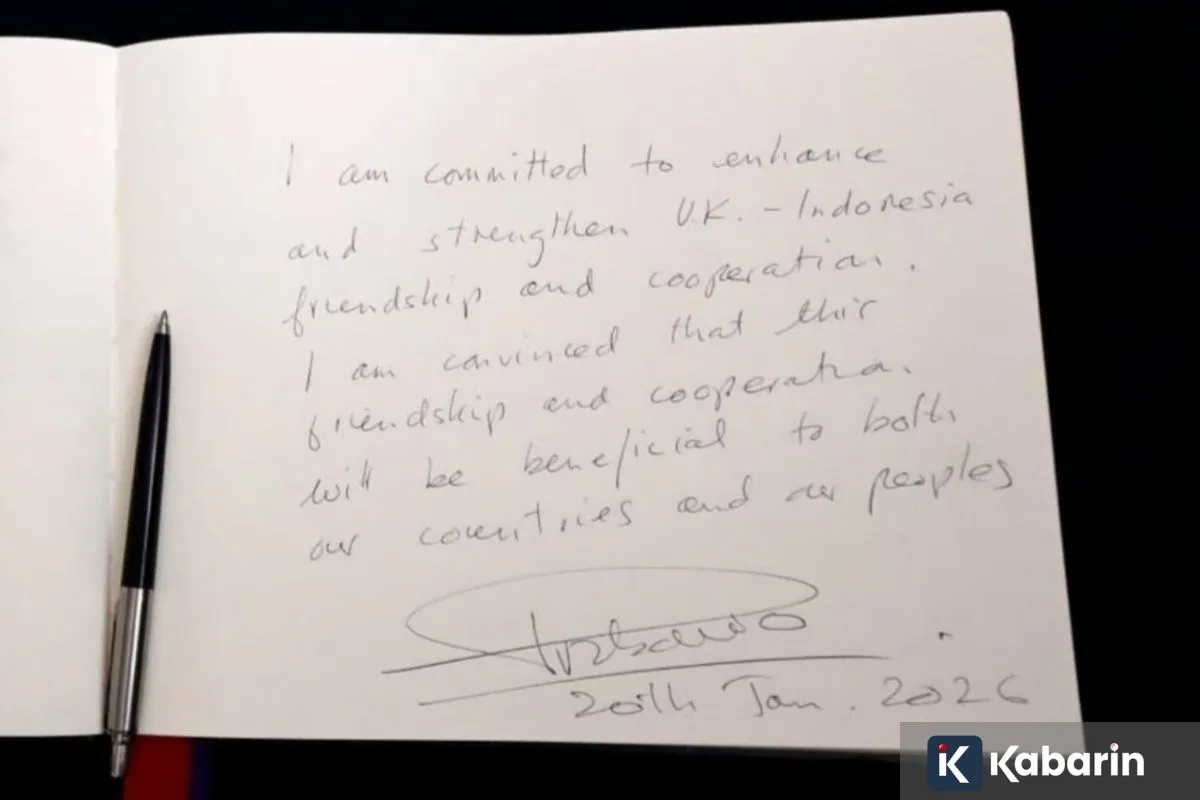 I am committed to enhance
and strengthen U.K. - Indonesia
friendship and cooperation.
I am convinced that this
friendship and cooperation.
will be beneficial to both
our countries and our peoples
Prabowo
20th Jan. 2026
Kabarin